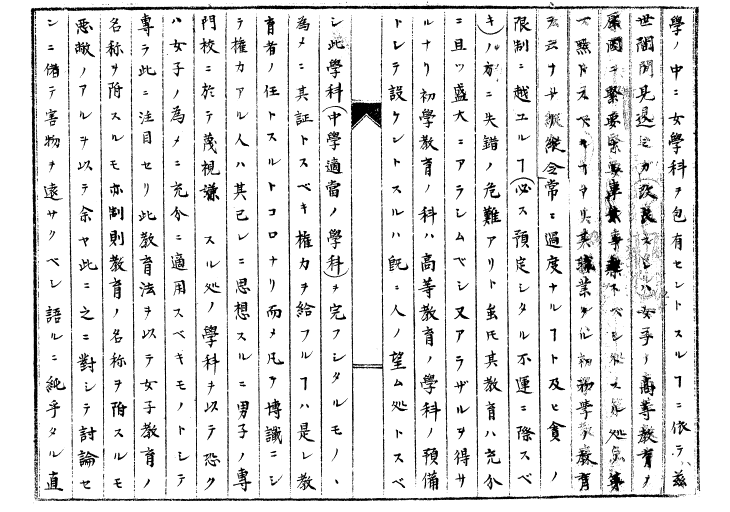 學ノ中ニ女學科ヲ包有セントスルヿニ依テ茲
世間聞見ハ女子ノ高等教育ヲ
緊要スベシ処
初學ノ教育
縱令常ニ過度ナルヿト及ヒ貪ノ
限制ニ越ユルヿ(必ス預定シタル不運ニ際スベ
キ)ノ方ニ失錯ノ危難アリト虽モ其教育ハ充分
ニ且ツ盛大ニアラシムベシ又アラザルヲ得サ
ルナリ初學教育ノ科ハ高等教育ノ學科ノ預備
トシテ設ケントスルハ既ニ人ノ望ム処トスベ
シ此學科(中學適當ノ學科)ヲ完フシタルモノヽ
為メニ其証トスベキ権力ヲ給フルヿハ是レ教
育者ノ任トスルトコロナリ而メ凡ソ博識ニシ
テ権力アル人ハ其己レニ思想スルニ男子ノ專
門校ニ於テ蔑視謙スル処ノ學科ヲ以テ恐ク
ハ女子ノ為メニ充分ニ適用スベキモノトシテ
專ラ此ニ注目セリ此教育法ヲ以テ女子教育ノ
名称ヲ附スルモ亦制則教育ノ名称ヲ附スルモ
悪敵ノアルヲ以テ余ヤ此ニ之ニ對シテ討論セ
ンニ備テ害物ヲ遠サクベシ語ルニ純乎タル直